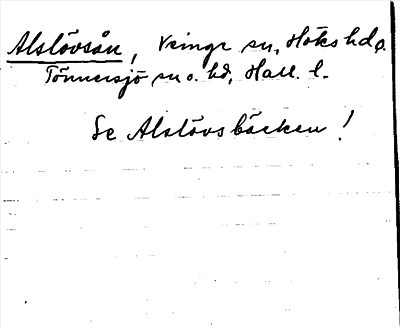 Alslövsån, Veinge sn, Höks hd o.
Tönnersjö sn o. hd, Hall. l.
Se Alslövsbäcken!